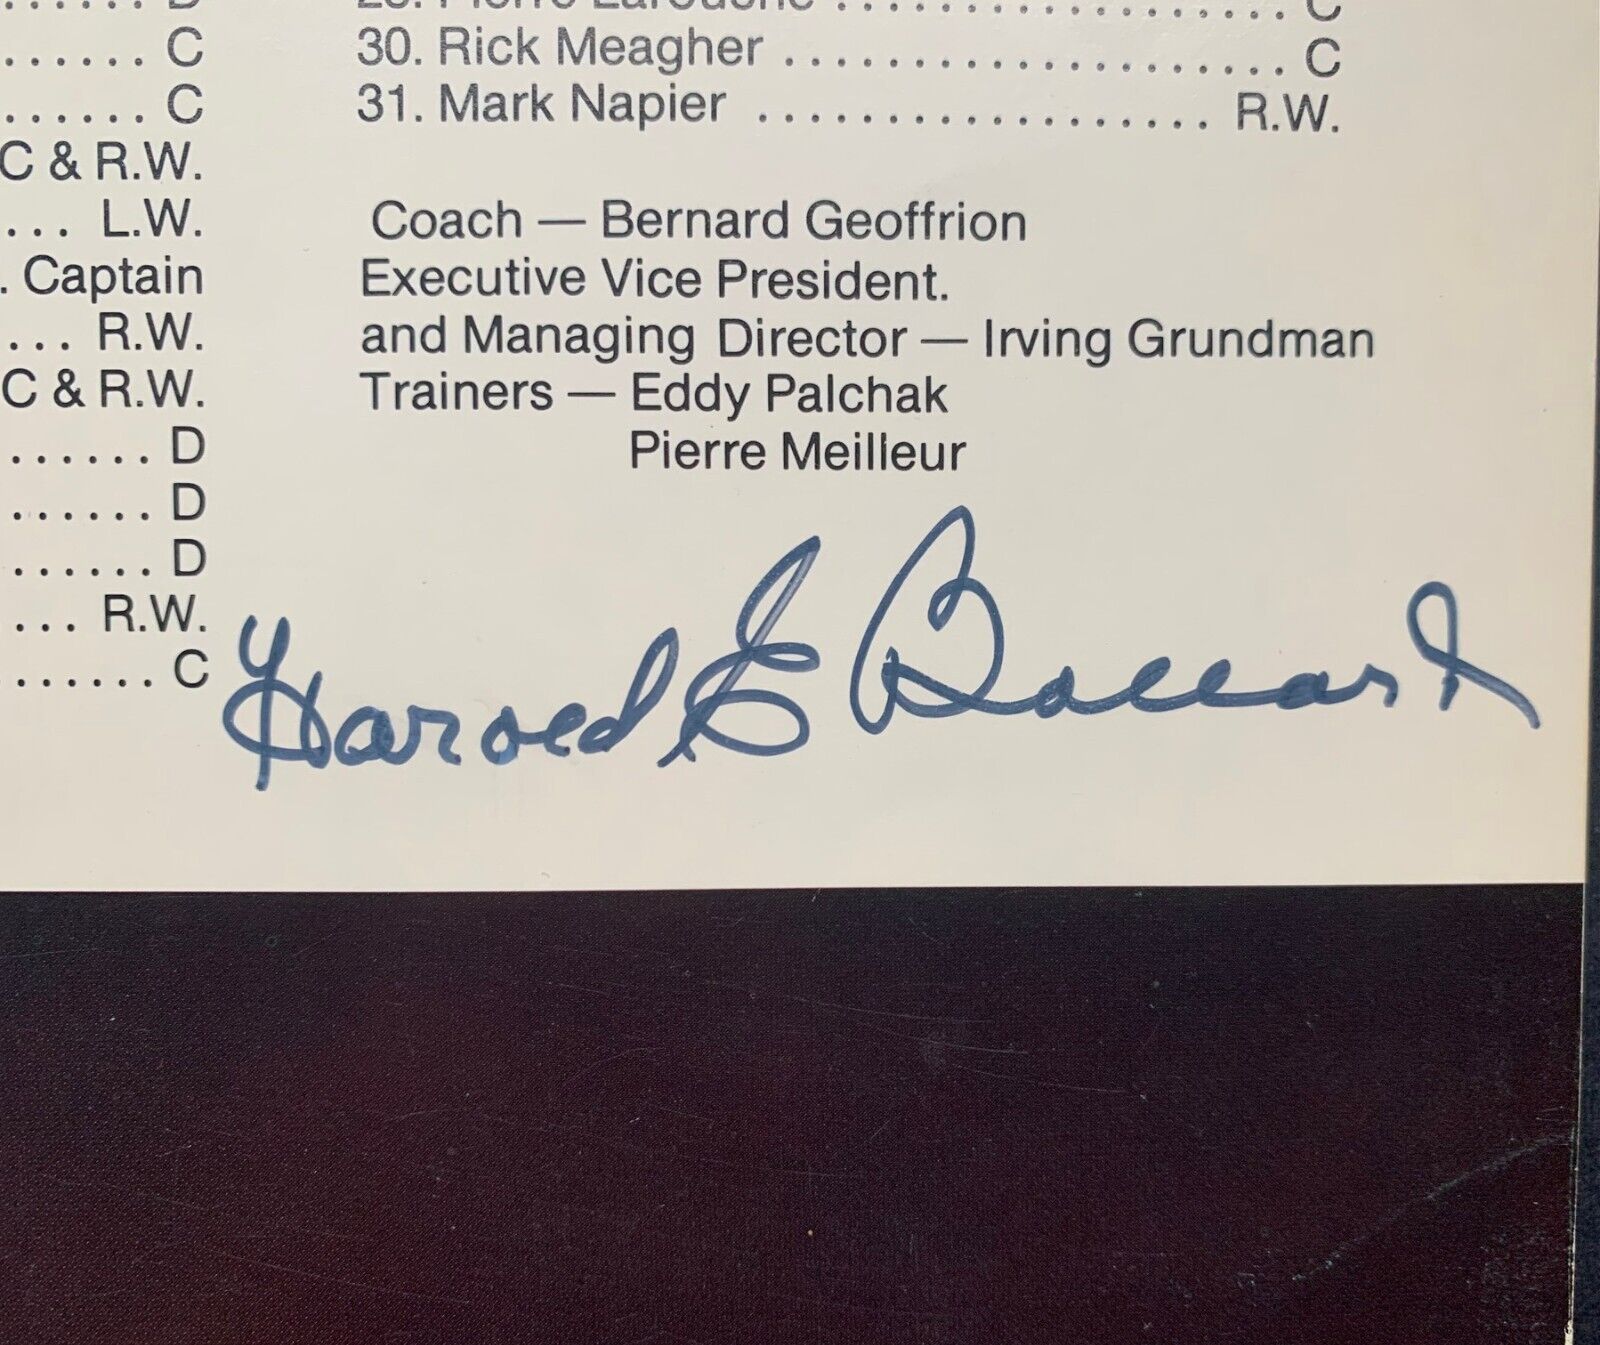 D
...... C
...... C
C & R.W.
... L.W.
. Captain
... R.W.
C & R.W.
...... D
...... D
...... D
... R.W.
...... C
Pierre Larouche .................. C
30. Rick Meagher .................... C
31. Mark Napier .................. R.W.
Coach — Bernard Geoffrion
Executive Vice President.
and Managing Director — Irving Grundman
Trainers — Eddy Palchak
Pierre Meilleur
Harold E Ballard